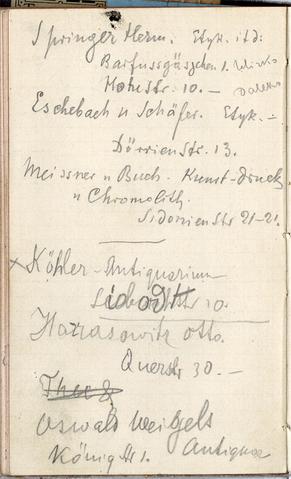 Springer Herm. Etyk. itd:
Barfussgässchen 1.
Hohestr. 10. —
Eschebach u Schäfer. Etyk. —
Dörrienstr. 13.
Meissner u Buch. Kunst-druck
u Chromolith.
Sidonienstr 21-21.
× Köhler - Antiquarium
10.
Harrasowitz Otto.
Querstr 30. —
Oswald Weigels
König str 1. Antiquar